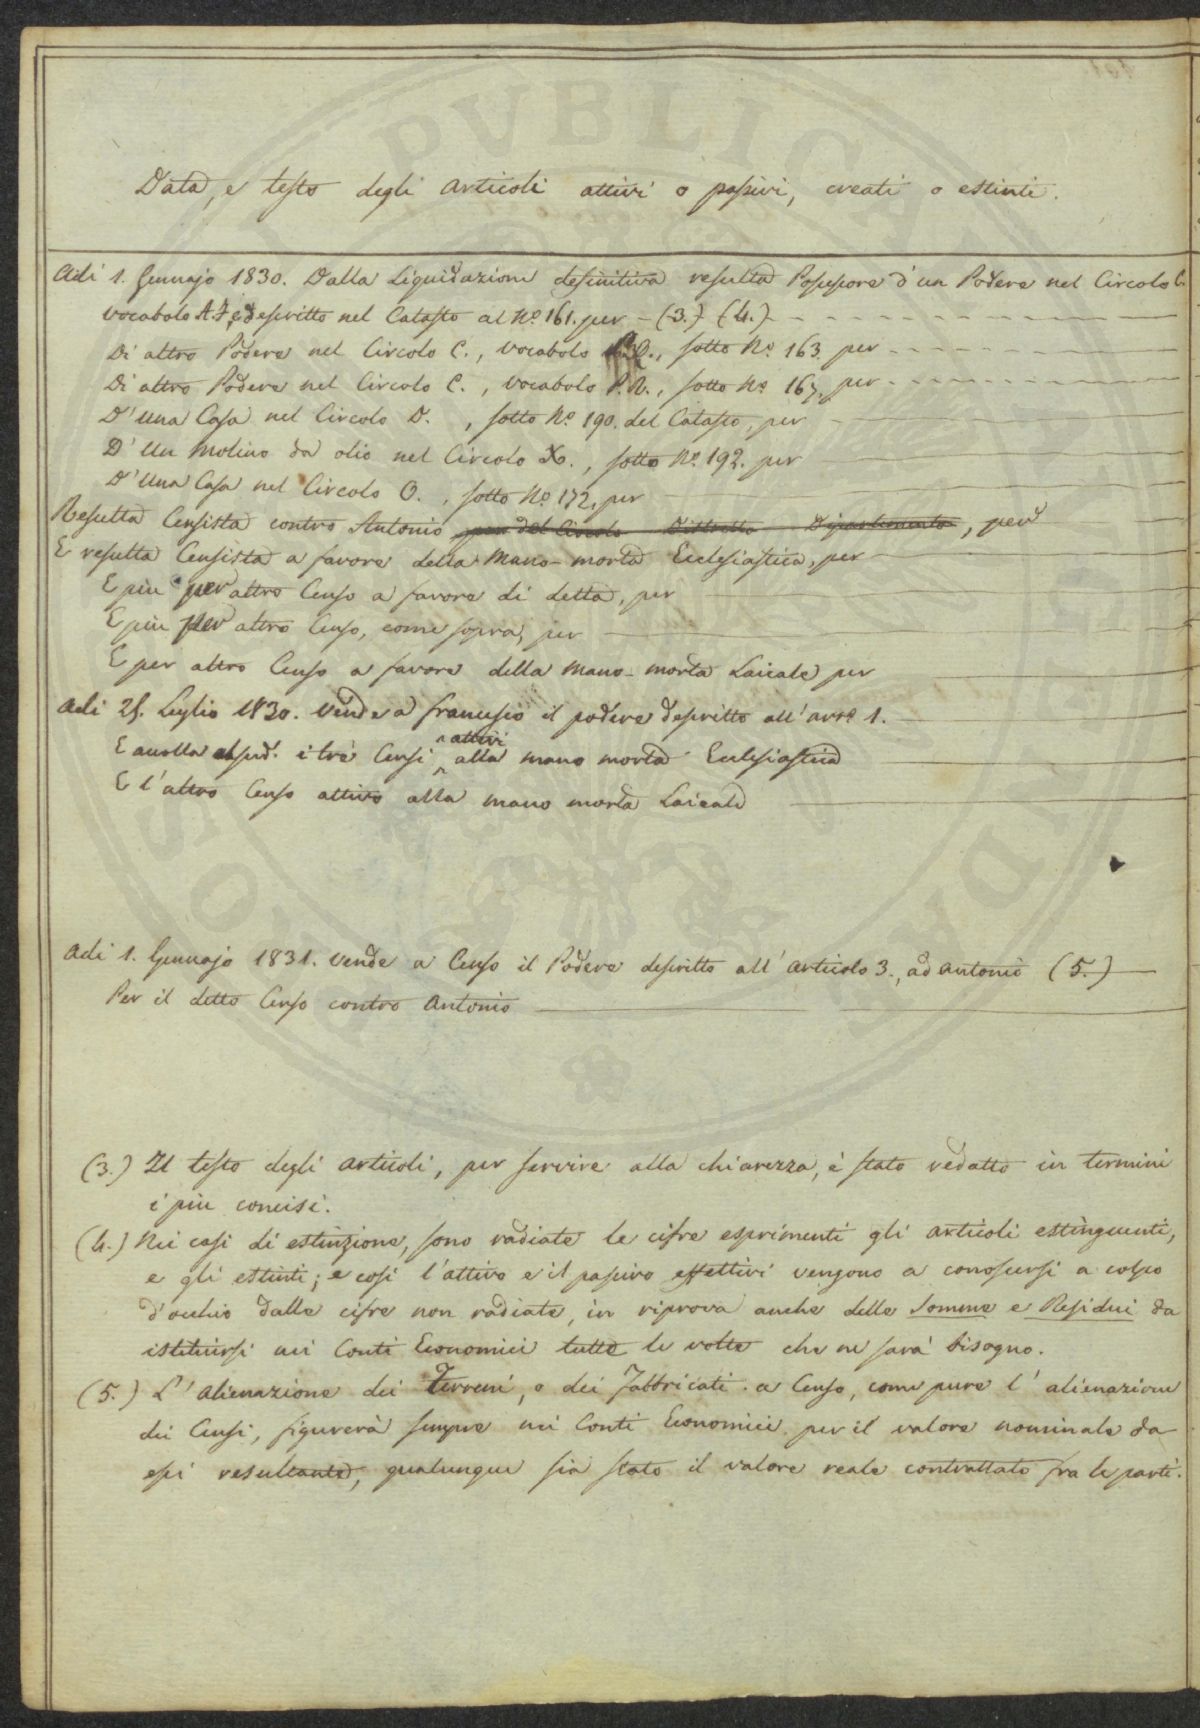 Data, e testo degli articoli attivi o passivi, creati o estinti.
Adi 1. Gennajo 1830. Dalla Liquidazione definitiva resulta Possessore d'un Podere nel Circolo C.
vocabolo A.Z, descritto nel Catasto al Nº 161. per - (3.) (4.)
Di altro Podere nel Circolo C., vocabolo sotto Nº 163. per
Di altro Podere nel Circolo C., vocabolo P.R., sotto Nº 167. per
D'una Casa nel Circolo D. , sotto Nº 190. del Catasto, per
D'un molino da olio nel Circolo X., sotto Nº 192. per
D'una Casa nel Circolo O. , sotto Nº 172, per
Resulta Censista contro Antonio del Circolo Distretto Dipartimento, per
E resulta Censista a favore della Mano-morta Ecclesiastica, per
E più per altro Censo a favore di detta, per
E più per altro Censo, come sopra, per
E per altro Censo a favore della mano-morta Laicale per
Adi 25. Luglio 1830. Vende a Francesco il podere descritto all'artº 1.
E accolla al sud. i trè Censi attivi alla mano morta Ecclesiastica
E l'altro Censo attivo alla mano morta Laicale
Adi 1. Gennajo 1831. Vende a Censo il Podere descritto all'articolo 3., ad Antonio (5.)
Per il detto Censo contro Antonio
(3.) Il testo degli articoli, per servire alla chiarezza, è stato redatto in termini
i più concisi.
(4.) Nei casi di estinzione, sono radiate le cifre esprimenti gli articoli estinguenti,
e gli estinti; e così l'attivo e il passivo effettivi vengono a conoscersi a colpo
d'occhio dalle cifre non radiate, in riprova anche delle Somme e Residui da
istituirsi nei Conti Economici tutte le volte che ne sarà bisogno.
(5.) L'alienazione dei Terreni, o dei Fabbricati a Censo, come pure l'alienazione
dei Censi, figurerà sempre nei Conti Economici per il valore nominale da
essi resultante, qualunque sia stato il valore reale contrattato fra le parti.